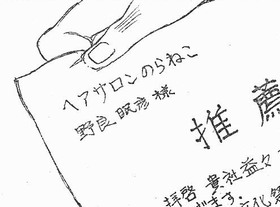 ヘアサロンのらねこ
野良 眠彦 様
推薦
拝啓 貴社益々
ます。
文化祭